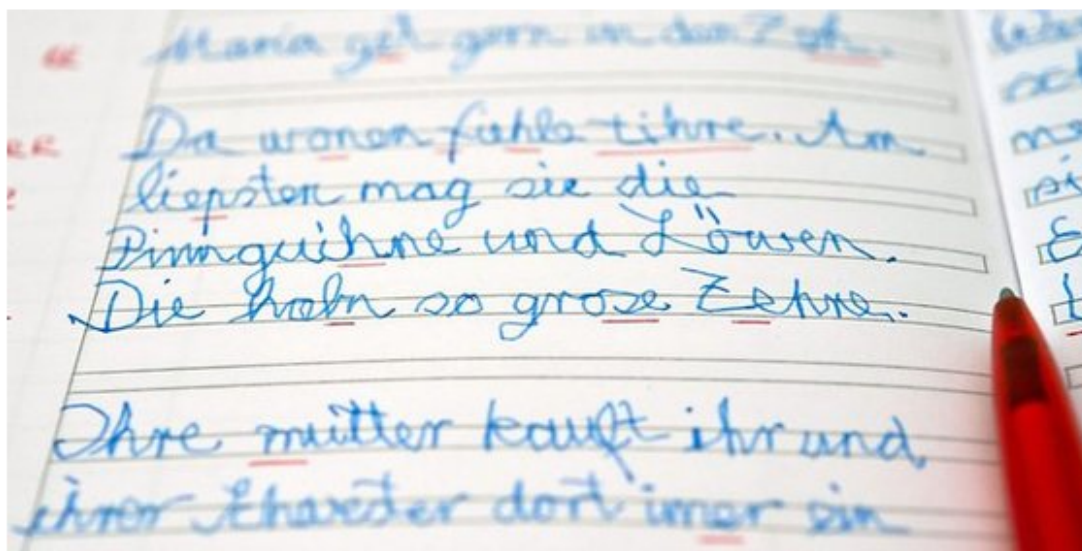 Maria get gern in den Zoh.
Da wonen fiehle tihre. Am
liepsten mag sie die
Pinnguihne und Löwen.
Die habn so grose Zehne.
Ihre mutter kauft ihr und
ihrer dort imer ein